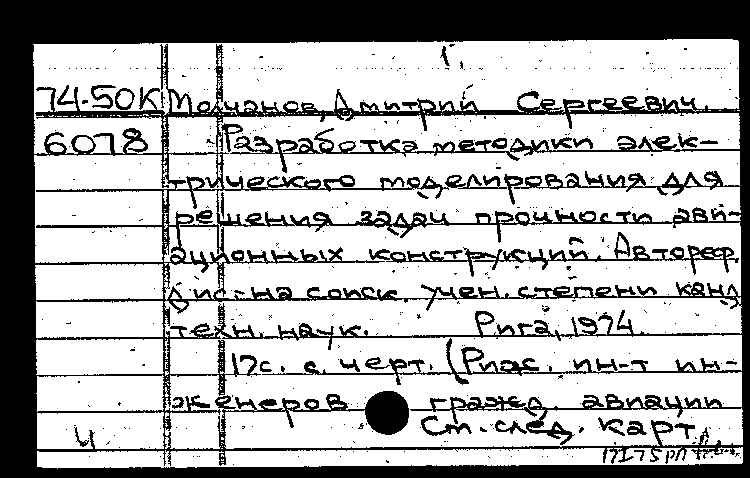 1.
74-50К Молчанов, Дмитрий Сергеевич.
6078 Разработка методики элек-
трического моделирования для
решения задач прочности ави-
ационных конструкций. Автореф.
дис. на соиск. учен. степени канд.
техн. наук. Рига, 1974.
17с. с черт. (Рижс. ин-т ин-
женеров гражд. авиации
Ст. след. карт.
ч